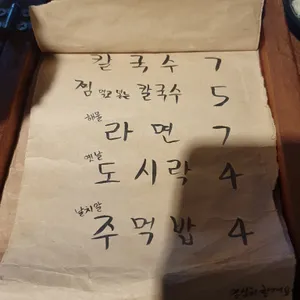 칼국수 7
찜 먹고 남는 칼국수 5
해물 라면 7
옛날 도시락 4
날치알 주먹밥 4